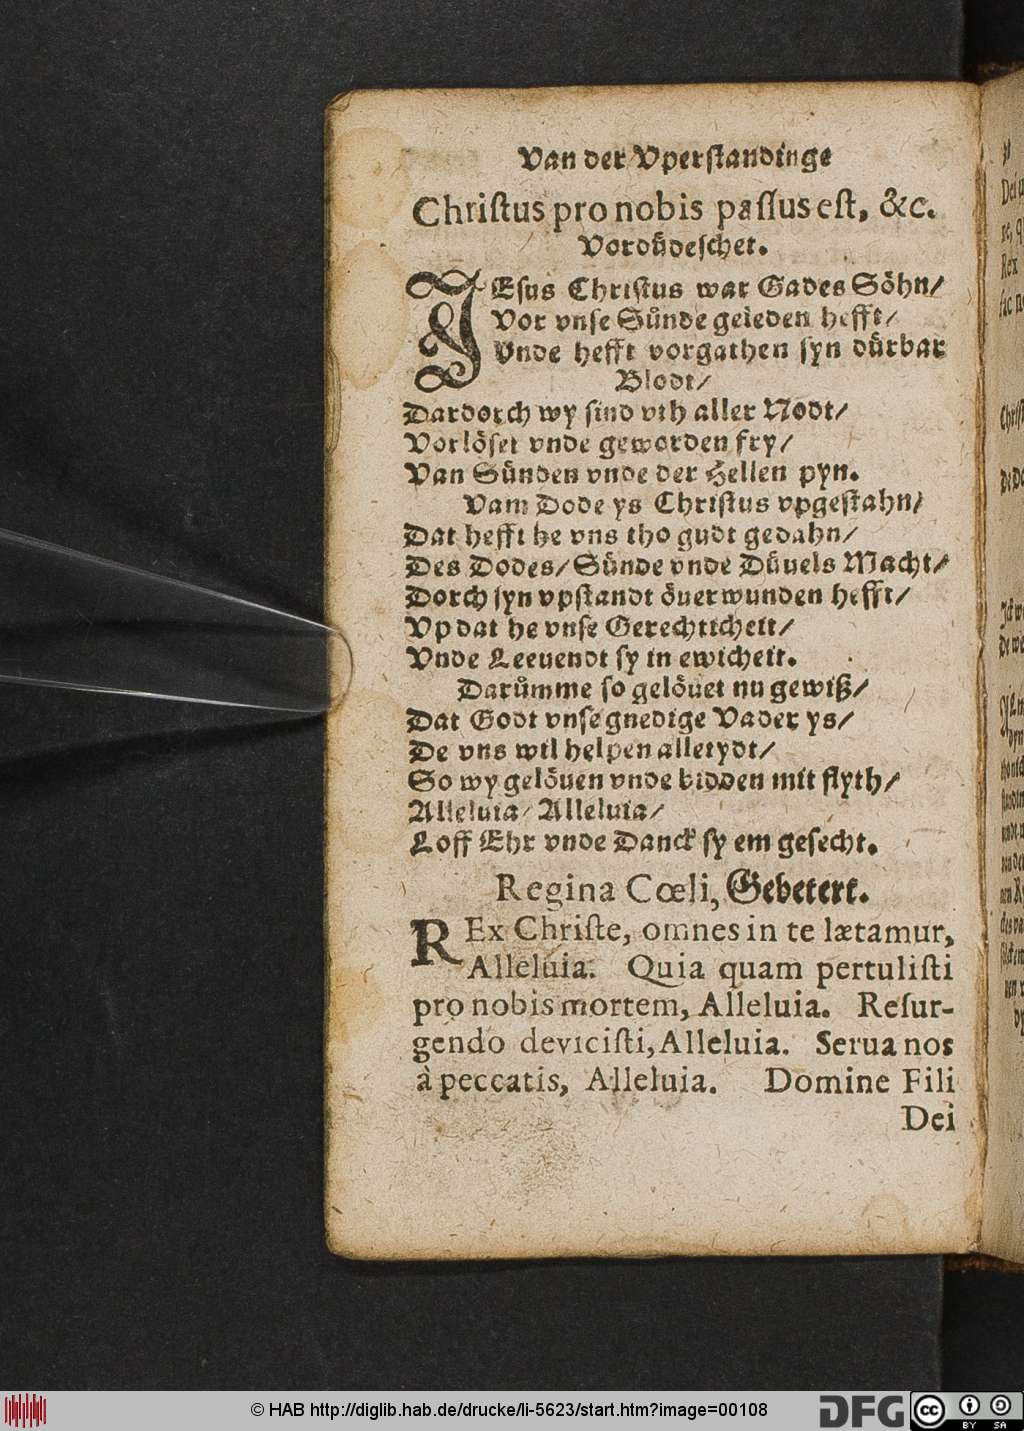 Van der Vperstandinge
Christus pro nobis passus est, &c.
Vordüdeschet.
JEsus Christus war Gades Söhn/
Vor vnse Sünde geleden hefft/
Vnde hefft vorgathen syn dürbar
Blodt/
Dardorch wy sind vth aller Nodt/
Vorlöset vnde geworden fry/
Van Sünden vnde der Hellen pyn.
Vam Dode ys Christus vpgestahn/
Dat hefft he vns tho gudt gedahn/
Des Dodes/ Sünde vnde Düuels Macht/
Dorch syn vpstandt öuerwunden hefft/
Vp dat he vnse Gerechticheit/
Vnde Leeuendt sy in ewicheit.
Darümme so gelöuet nu gewiß/
Dat Godt vnse gnedige Vader ys/
De vns wil helpen alletydt/
So wy gelöuen vnde bidden mit flyth/
Alleluia/ Alleluia/
Loff Ehr vnde Danck sy em gesecht.
Regina Cœli, Gebetert.
REx Christe, omnes in te lætamur,
Alleluia. Quia quam pertulisti
pro nobis mortem, Alleluia. Resur-
gendo devicisti, Alleluia. Serua nos
à peccatis, Alleluia. Domine Fili
Dei
© HAB http://diglib.hab.de/drucke/li-5623/start.htm?image=00108
DFG
cc
BY SA